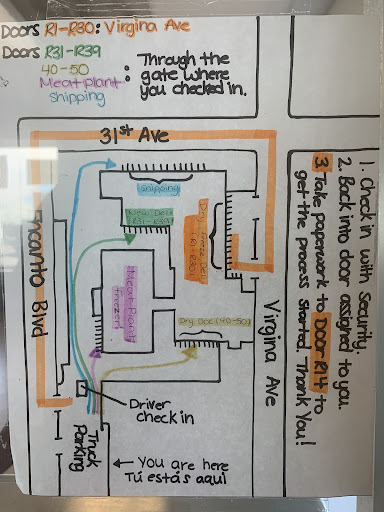 Doors R1-R30: Virgina Ave
Doors R31-R39
40-50
Meat plant
shipping
: Through the
gate where
you checked in.
31st Ave
Shipping
New Deli
(R31-R39)
Dry, Freeze, Deli
(R1-R30)
Meat Plant
(freezer)
Dry Doc (40-50)
Encanto Blvd
Virgina Ave
Driver
check in
Truck
Parking
← You are here
Tú estás aquí
1. Check in with Security.
2. Back into door assigned to you.
3. Take paperwork to Door R14 to
get the process started. Thank You!